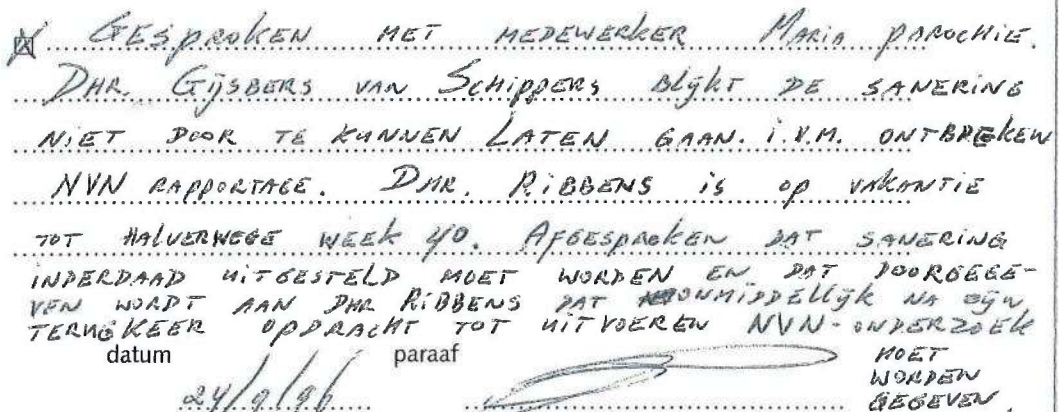 GESPROKEN MET MEDEWERKER MARIA PAROCHIE.
DHR. GIJSBERS VAN SCHIPPERS BLIJKT DE SANERING
NIET DOOR TE KUNNEN LATEN GAAN. i.v.m. ONTBREKEN
NVN RAPPORTAGE. DHR. RIBBENS IS OP VAKANTIE
TOT HALVERWEGE WEEK 40. AFGESPROKEN DAT SANERING
INDERDAAD UITGESTELD MOET WORDEN EN DAT DOORGEGE-
VEN WORDT AAN DHR RIBBENS DAT ONMIDDELLIJK NA ZIJN
TERUGKEER OPDRACHT TOT UITVOEREN NVN-ONDERZOEK
MOET
WORDEN
GEGEVEN.
datum paraaf
24/9/96